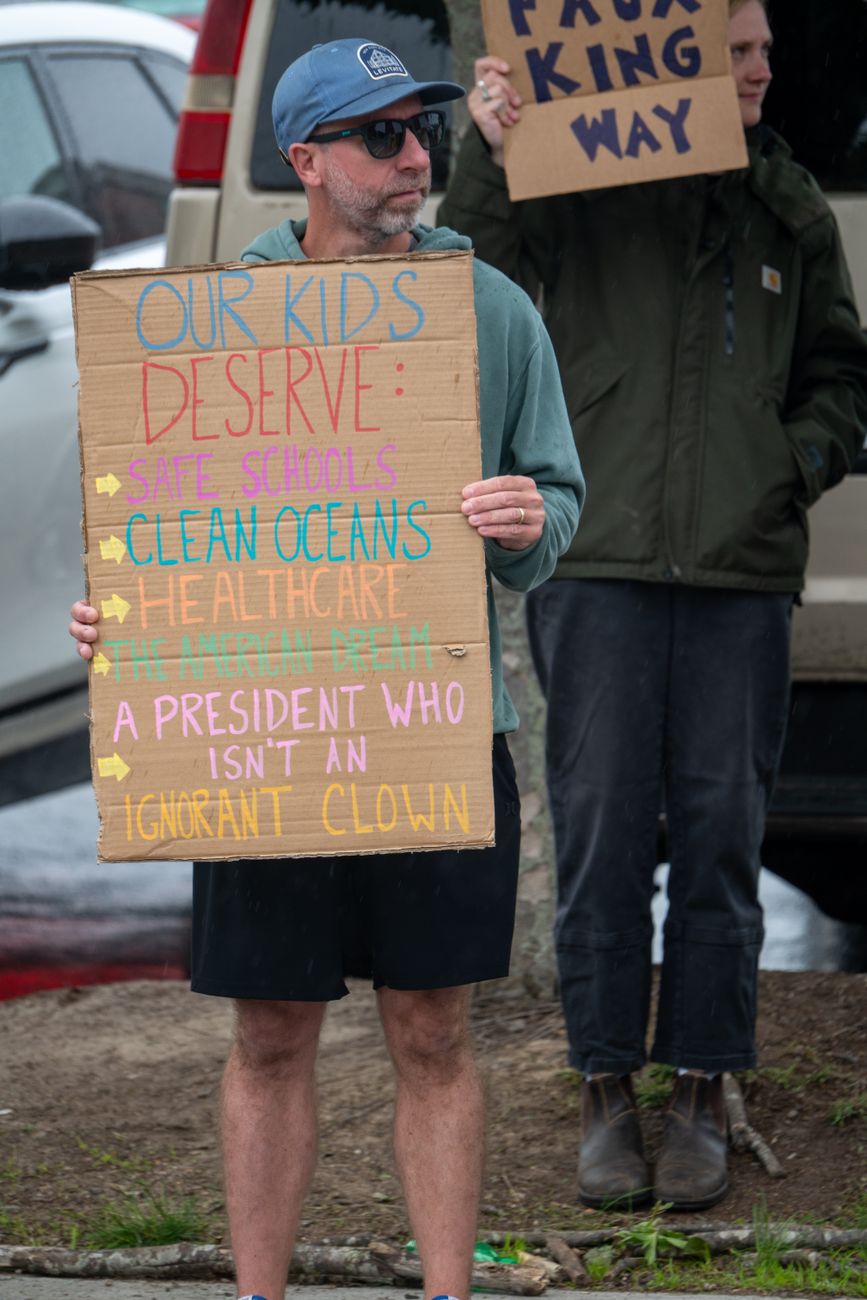 FAUX
KING
WAY
LEVITATE
OUR KIDS
DESERVE:
SAFE SCHOOLS
CLEAN OCEANS
HEALTHCARE
THE AMERICAN DREAM
A PRESIDENT WHO
ISN'T AN
IGNORANT CLOWN